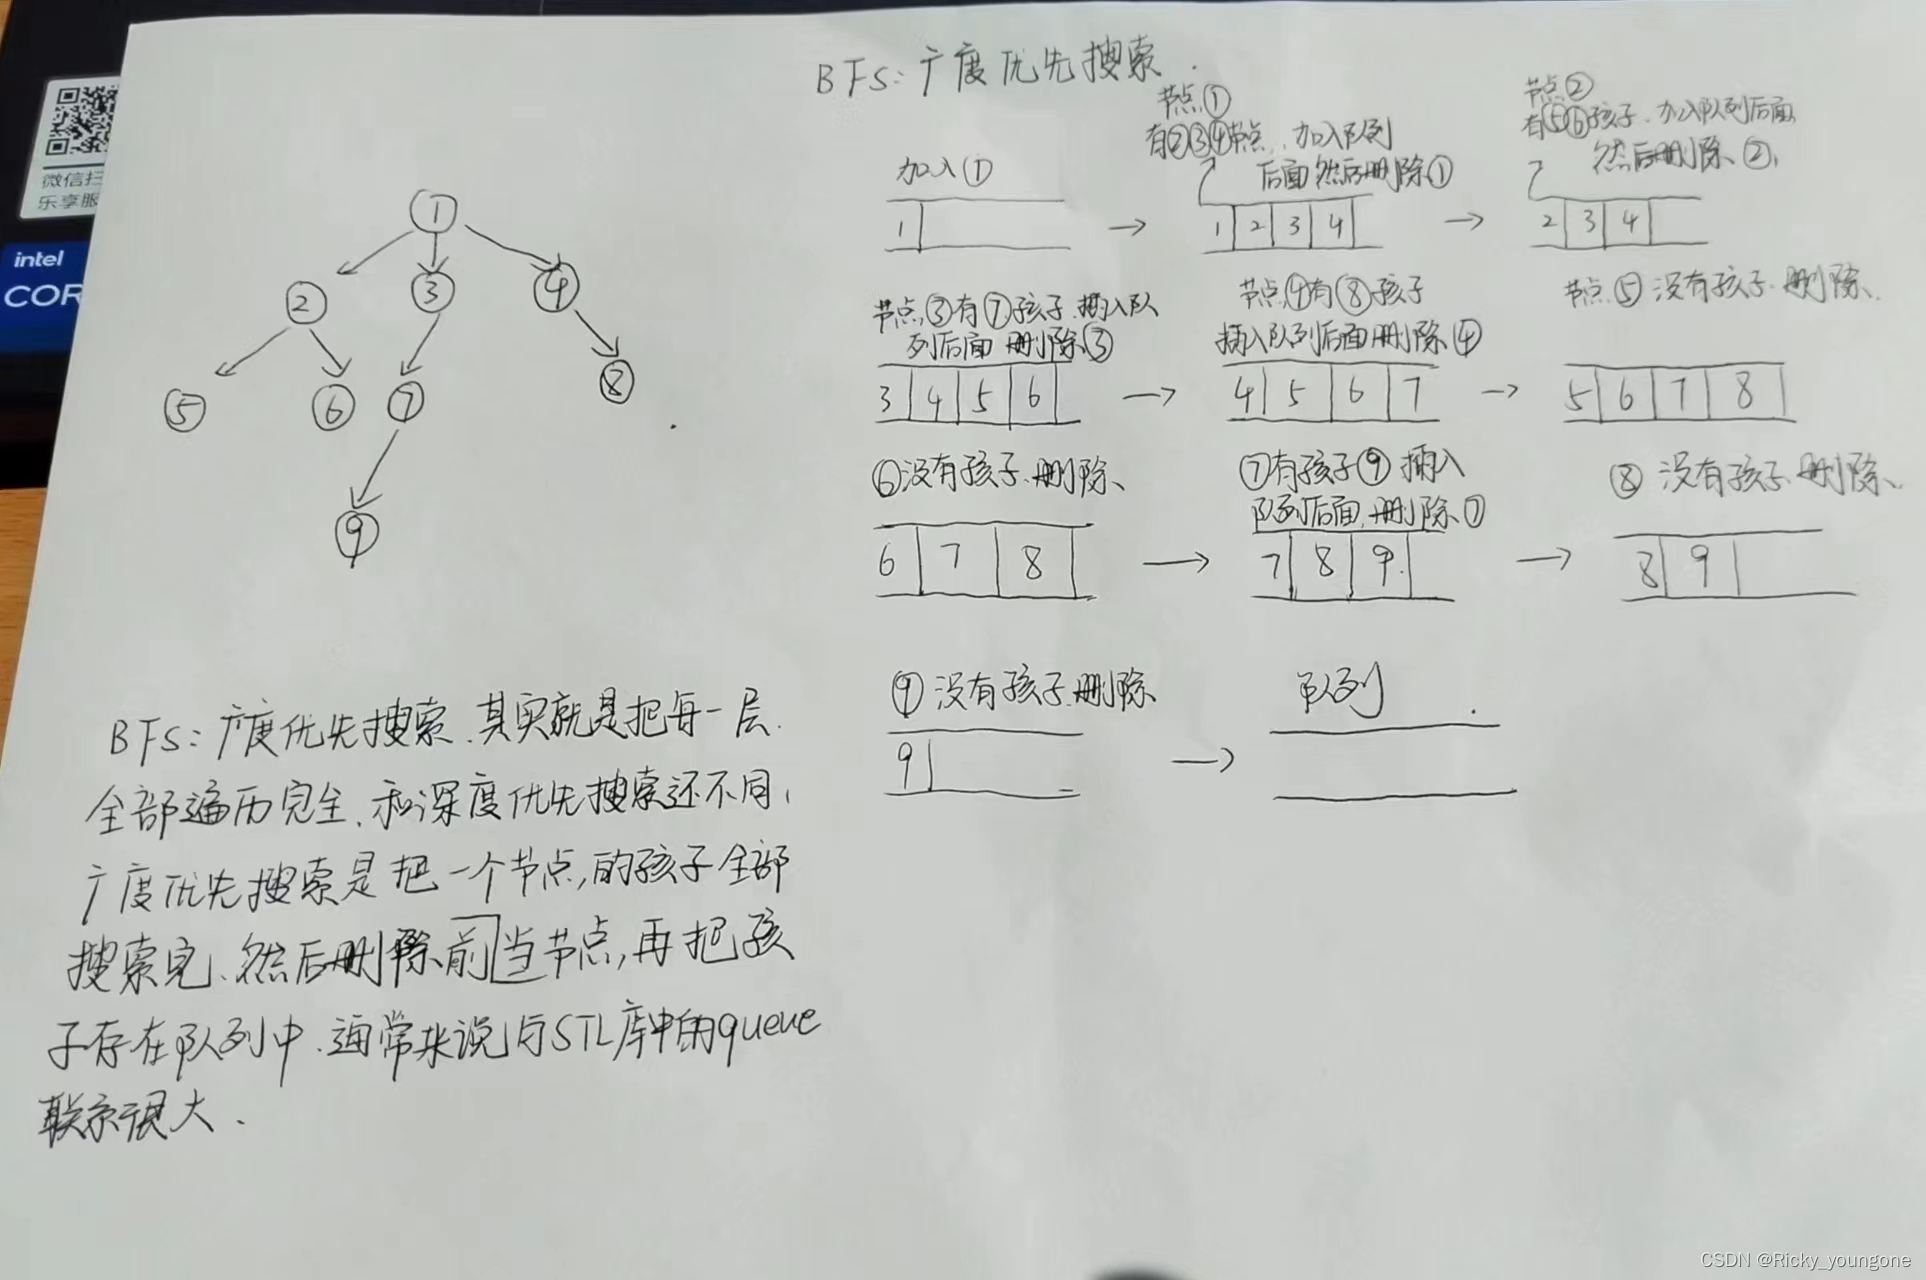 BFS:广度优先搜索.
微信扫
乐享服
intel
COR
1
2
3
4
5
6
7
8
9
加入①
1
节点①
有②③④节点,加入队列
后面然后删除①
1 2 3 4
节点②
有⑤⑥孩子.加入队列后面
然后删除②,
2 3 4
节点③有⑦孩子.插入队
列后面 删除③
3 4 5 6
节点④有⑧孩子
插入队列后面删除④
4 5 6 7
节点⑤没有孩子.删除.
5 6 7 8
⑥没有孩子.删除、
6 7 8
⑦有孩子⑨ 插入
队列后面,删除⑦
7 8 9
⑧ 没有孩子.删除.
8 9
⑨没有孩子.删除
9
队列
BFS:广度优先搜索.其实就是把每一层.
全部遍历完全.和深度优先搜索还不同,
广度优先搜索是把一个节点,的孩子全部
搜索完、然后删除前当节点,再把孩
子存在队列中.通常来说与STL库中的queue
联系很大.
CSDN @Ricky_youngone